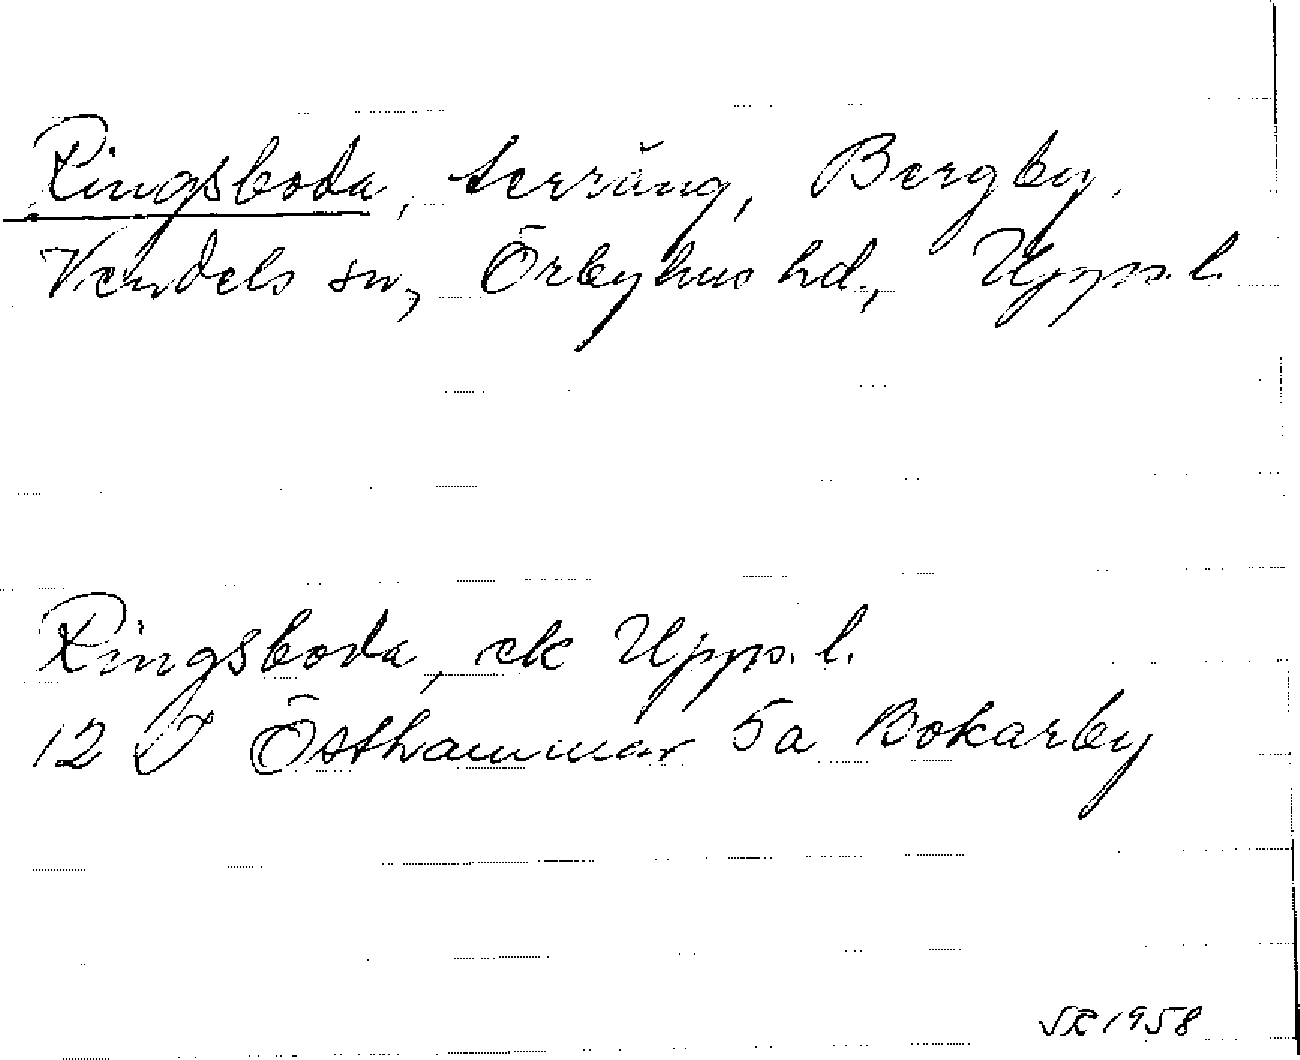 Ringsboda, terräng, Bergby,
Vendels sn, Örbyhus hd., Upps.l.
Ringsboda, ek Upps. l.
12 I Östhammar 5a Bokarby
SR 1958